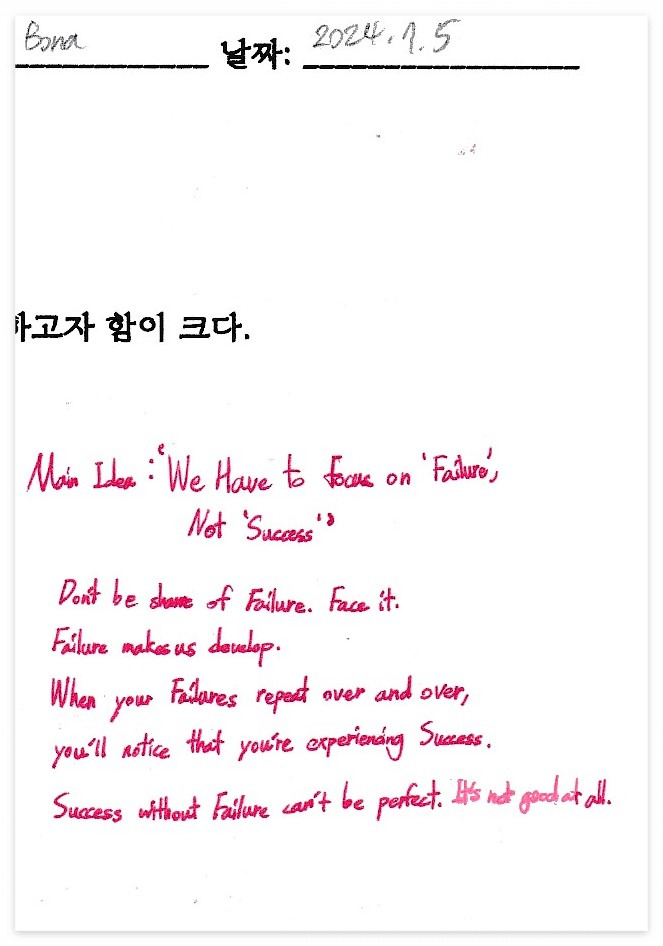 Bona 날짜: 2024.1.5
하고자 함이 크다.
Main Idea : "We Have to focus on 'Failure',
Not 'Success'"
Don't be shame of Failure. Face it.
Failure makes us develop.
When your Failures repeat over and over,
you'll notice that you're experiencing Success.
Success without Failure can't be perfect. It's not good at all.